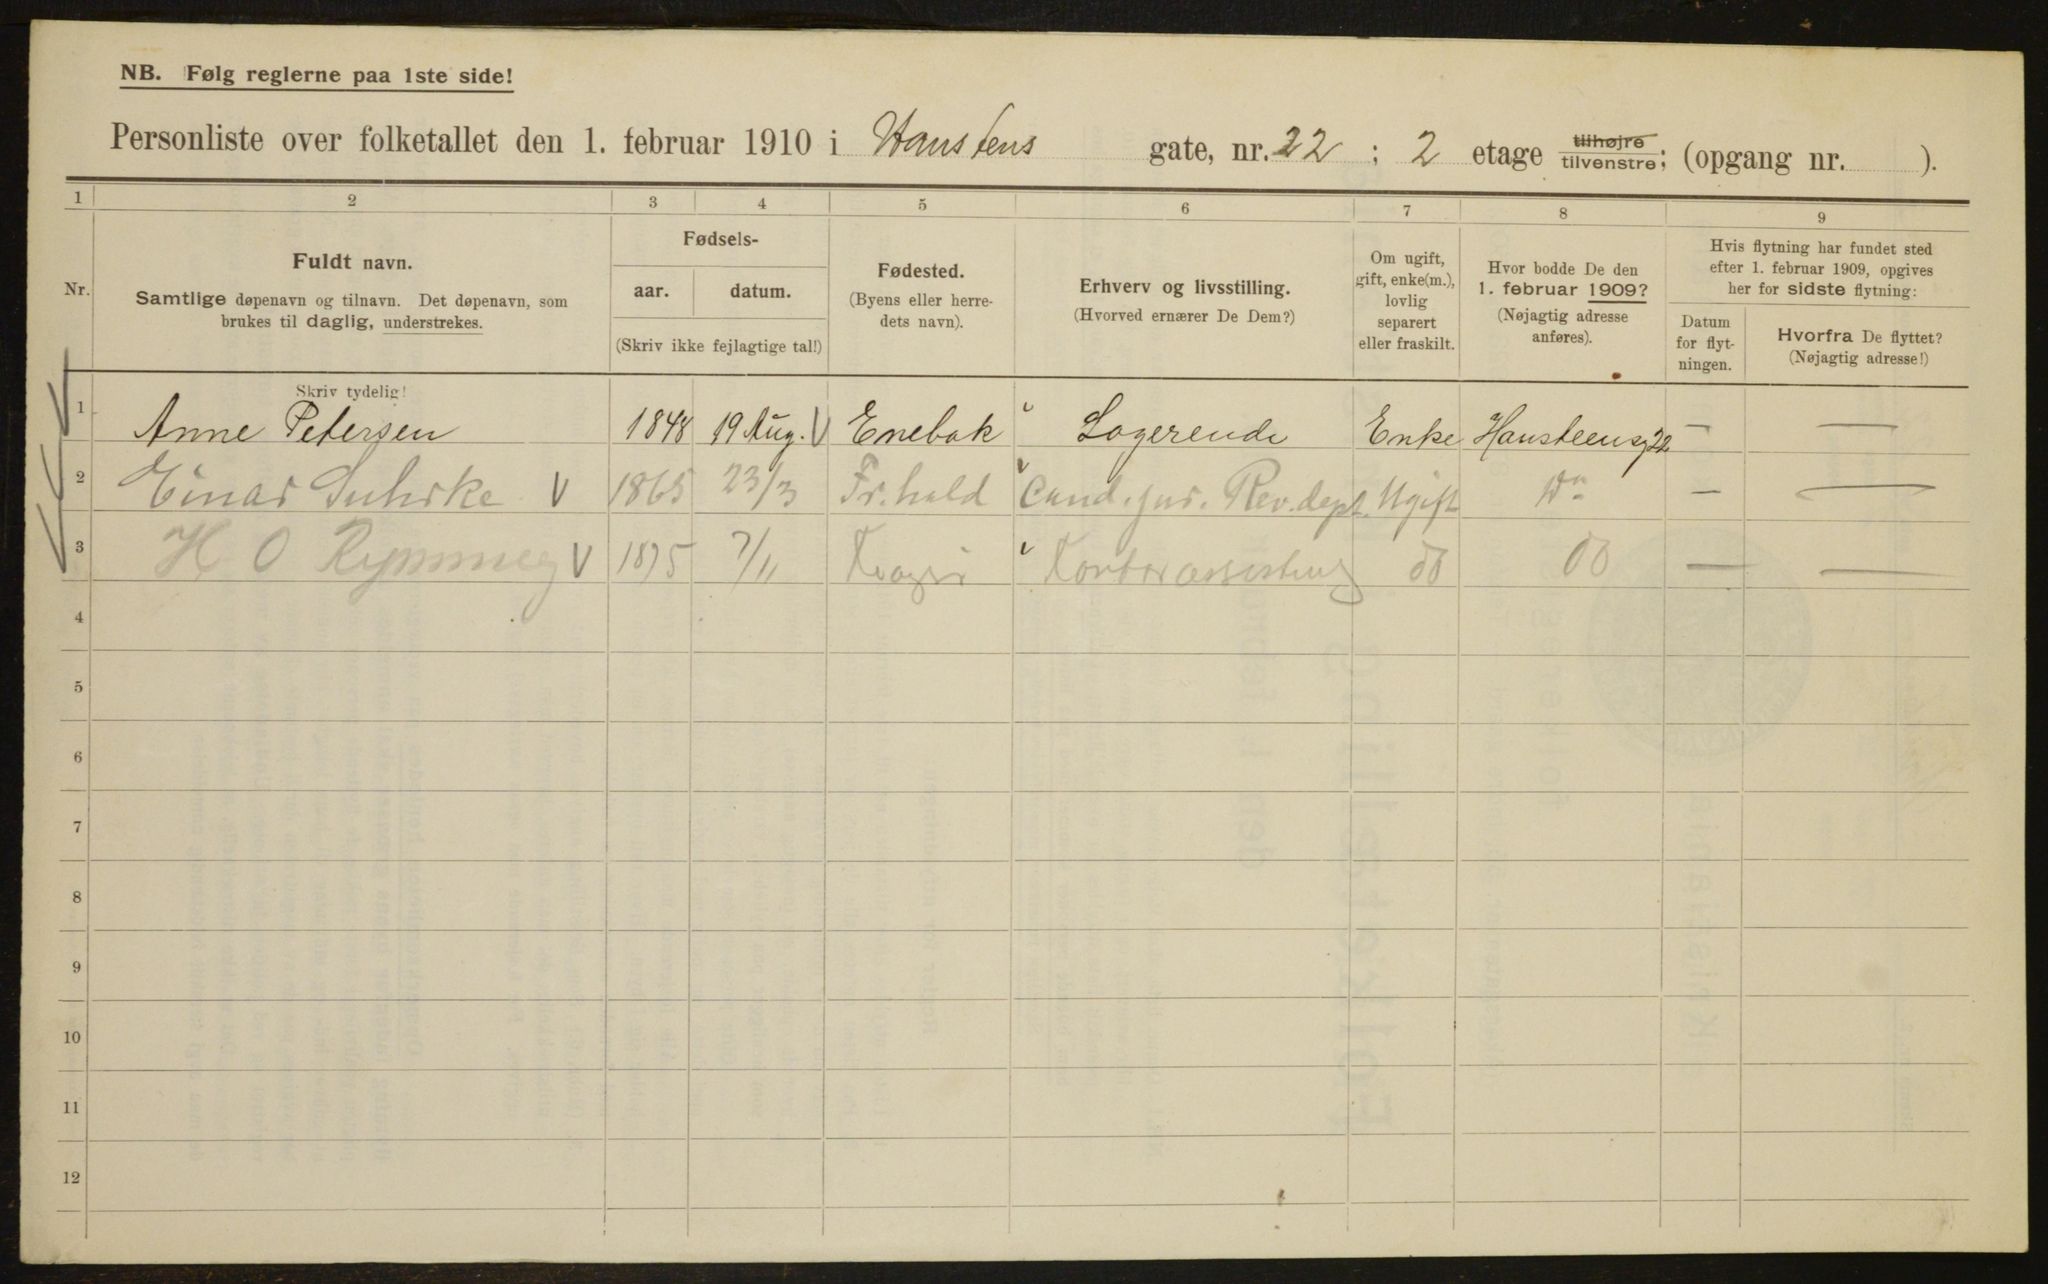 NB. Følg reglerne paa 1ste side!
Personliste over folketallet den 1. februar 1910 i Hanstens gate, nr. 22 ; 2 etage tilhøjre tilvenstre; (opgang nr. ).
1 2 3 4 5 6 7 8 9
Nr.
Fuldt navn.
Samtlige døpenavn og tilnavn. Det døpenavn, som
brukes til daglig, understrekes.
Fødsels-
aar. datum.
(Skriv ikke fejlagtige tal!)
Fødested.
(Byens eller herre-
dets navn).
Erhverv og livsstilling.
(Hvorved ernærer De Dem?)
Om ugift,
gift, enke(m.),
lovlig
separert
eller fraskilt.
Hvor bodde De den
1. februar 1909?
(Nøjagtig adresse
anføres).
Hvis flytning har fundet sted
efter 1. februar 1909, opgives
her for sidste flytning:
Datum
for flyt-
ningen.
Hvorfra De flyttet?
(Nøjagtig adresse!)
Skriv tydelig!
1 Anne Petersen 1848 19 Aug. V Enebak Logerende Enke Hansteensg 22 — —
2 Einar Suhrke V 1865 23/3 Fr.hald Cand. jur. Rev. dept. Ugift Do — —
3 H O V 1875 7/11 do do — —
4
5
6
7
8
9
10
11
12